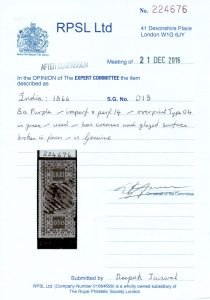 No. 224676
RPSL Ltd
41 Devonshire Place
London W1G 6JY
AFTER COMPARISON
Meeting of 21 DEC 2016
In the OPINION OF The EXPERT COMMITTEE the item
described as
India: 1866 S.G. No. O18
8a Purple - imperf x perf 14 - overprint Type O4
in green - used - has creases and glazed surface
broken in places - is genuine
On behalf of the Committee
224676
Submitted by Deepak Jaiswal
RPSL Ltd (Company Number 01684659) is a wholly owned subsidiary of
The Royal Philatelic Society London